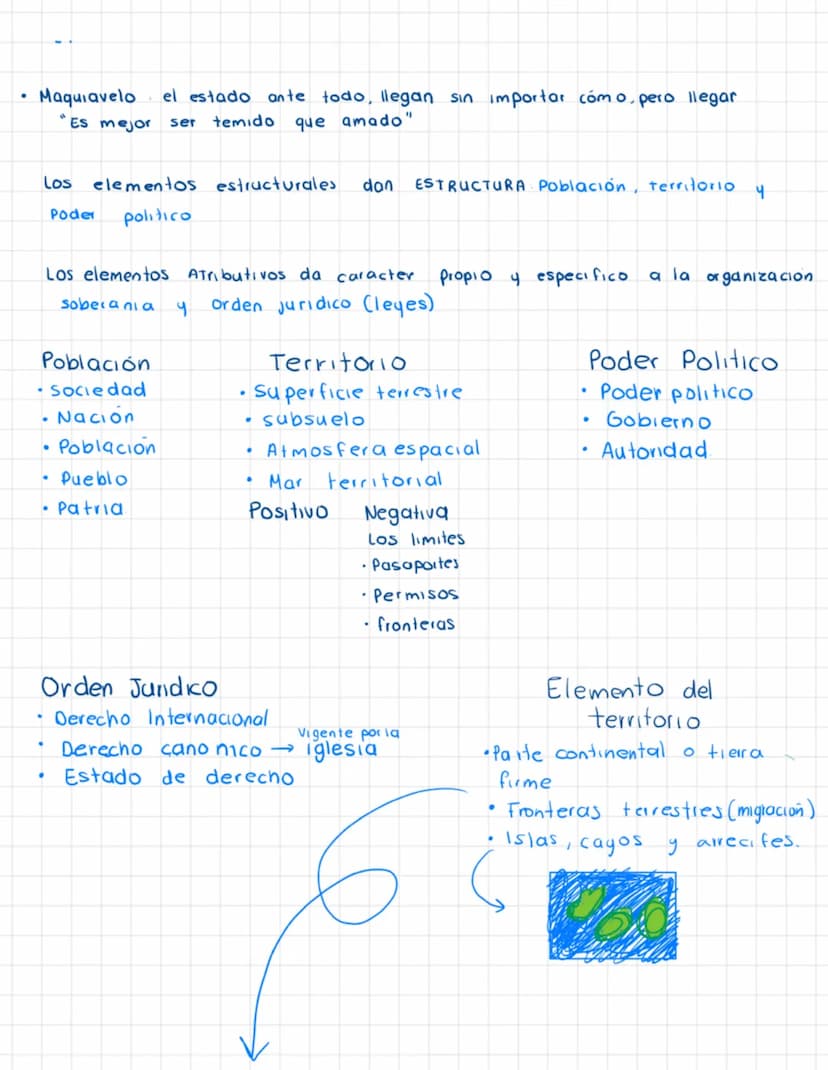 • Maquiavelo. el estado ante todo, llegan sin importar cómo, pero llegar
"Es mejor ser temido que amado"
Los elementos estructurales dan ESTRUCTURA Población, territorio y
Poder politico
Los elementos Atributivos da caracter propio y especifico a la organizacion
soberania y orden juridico (leyes)
Población
• Sociedad
• Nación
• Población
• Pueblo
• Patria
Territorio
• Superficie terrestre
• subsuelo
• Atmosfera espacial
• Mar territorial
Positivo Negativa
Los limites
• Pasaportes
• Permisos
• fronteras
Poder Politico
• Poder politico
• Gobierno
• Autoridad
Orden Juridico
• Derecho Internacional
• Derecho canonico → Vigente por la
iglesia
• Estado de derecho
Elemento del
territorio
• Parte continental o tierra
firme
• Fronteras terrestres (migración)
• Islas, cayos y arrecifes.